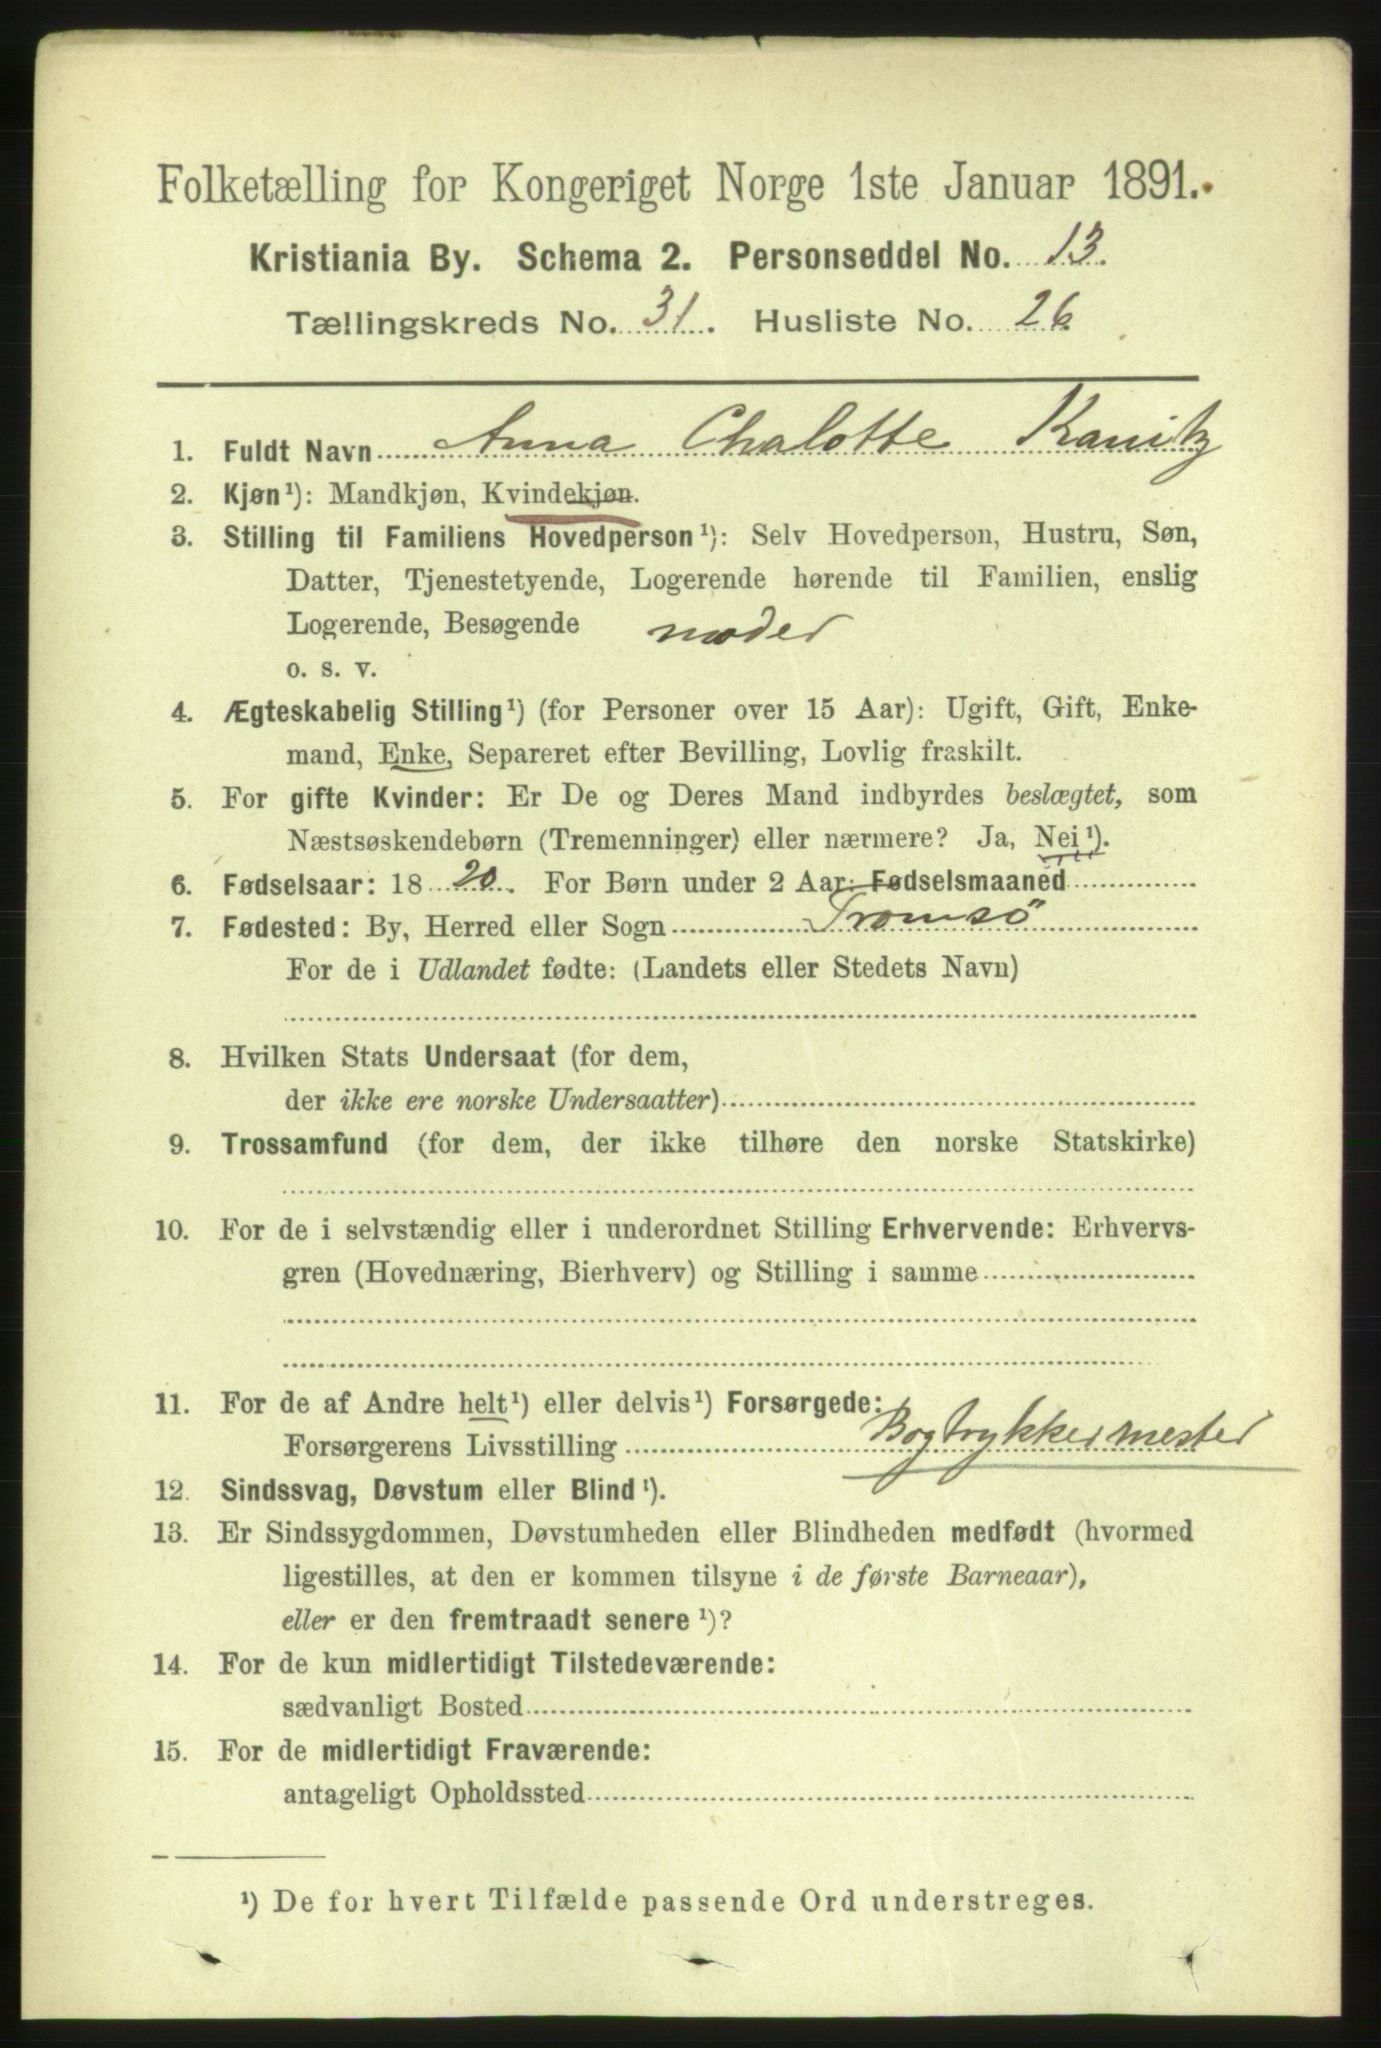 Folketælling for Kongeriget Norge 1ste Januar 1891.
Kristiania By. Schema 2. Personseddel No. 13.
Tællingskreds No. 31. Husliste No. 26
1. Fuldt Navn Anna Chalotte Kanitz
2. Kjøn¹): Mandkjøn, Kvindekjøn.
3. Stilling til Familiens Hovedperson¹): Selv Hovedperson, Hustru, Søn,
Datter, Tjenestetyende, Logerende hørende til Familien, enslig
Logerende, Besøgende moder
o. s. v.
4. Ægteskabelig Stilling¹) (for Personer over 15 Aar): Ugift, Gift, Enke-
mand, Enke, Separeret efter Bevilling, Lovlig fraskilt.
5. For gifte Kvinder: Er De og Deres Mand indbyrdes beslægtet, som
Næstsøskendebørn (Tremenninger) eller nærmere? Ja, Nei¹).
6. Fødselsaar: 1820. For Børn under 2 Aar: Fødselsmaaned
7. Fødested: By, Herred eller Sogn Tromsö
For de i Udlandet fødte: (Landets eller Stedets Navn)
8. Hvilken Stats Undersaat (for dem,
der ikke ere norske Undersaatter)
9. Trossamfund (for dem, der ikke tilhøre den norske Statskirke)
10. For de i selvstændig eller i underordnet Stilling Erhvervende: Erhvervs-
gren (Hovednæring, Bierhverv) og Stilling i samme
11. For de af Andre helt¹) eller delvis¹) Forsørgede:
Forsørgerens Livsstilling Bogtrykkermester
12. Sindssvag, Døvstum eller Blind¹).
13. Er Sindssygdommen, Døvstumheden eller Blindheden medfødt (hvormed
ligestilles, at den er kommen tilsyne i de første Barneaar),
eller er den fremtraadt senere¹)?
14. For de kun midlertidigt Tilstedeværende:
sædvanligt Bosted
15. For de midlertidigt Fraværende:
antageligt Opholdssted
¹) De for hvert Tilfælde passende Ord understreges.